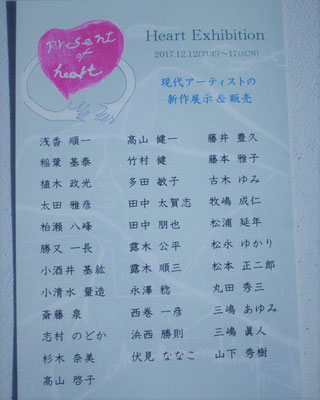 Present
of
heart
Heart Exhibition
2017.12.12(TUE)～17(SUN)
現代アーティストの
新作展示 & 販売
浅香 順一
稲葉 基泰
植木 政光
太田 雅彦
柏瀬 八峰
勝又 一長
小酒井 基紘
小清水 量造
斎藤 泉
志村 のどか
杉木 奈美
髙山 啓子
髙山 健一
竹村 健
多田 敏子
田中 太賀志
田中 朋也
露木 公平
露木 順三
永澤 稔
西巻 一彦
浜西 勝則
伏見 ななこ
藤井 豊久
藤本 雅子
古木 ゆみ
牧嶋 成仁
松浦 延年
松永 ゆかり
松本 正二郎
丸田 秀三
三嶋 あゆみ
三嶋 眞人
山下 秀樹